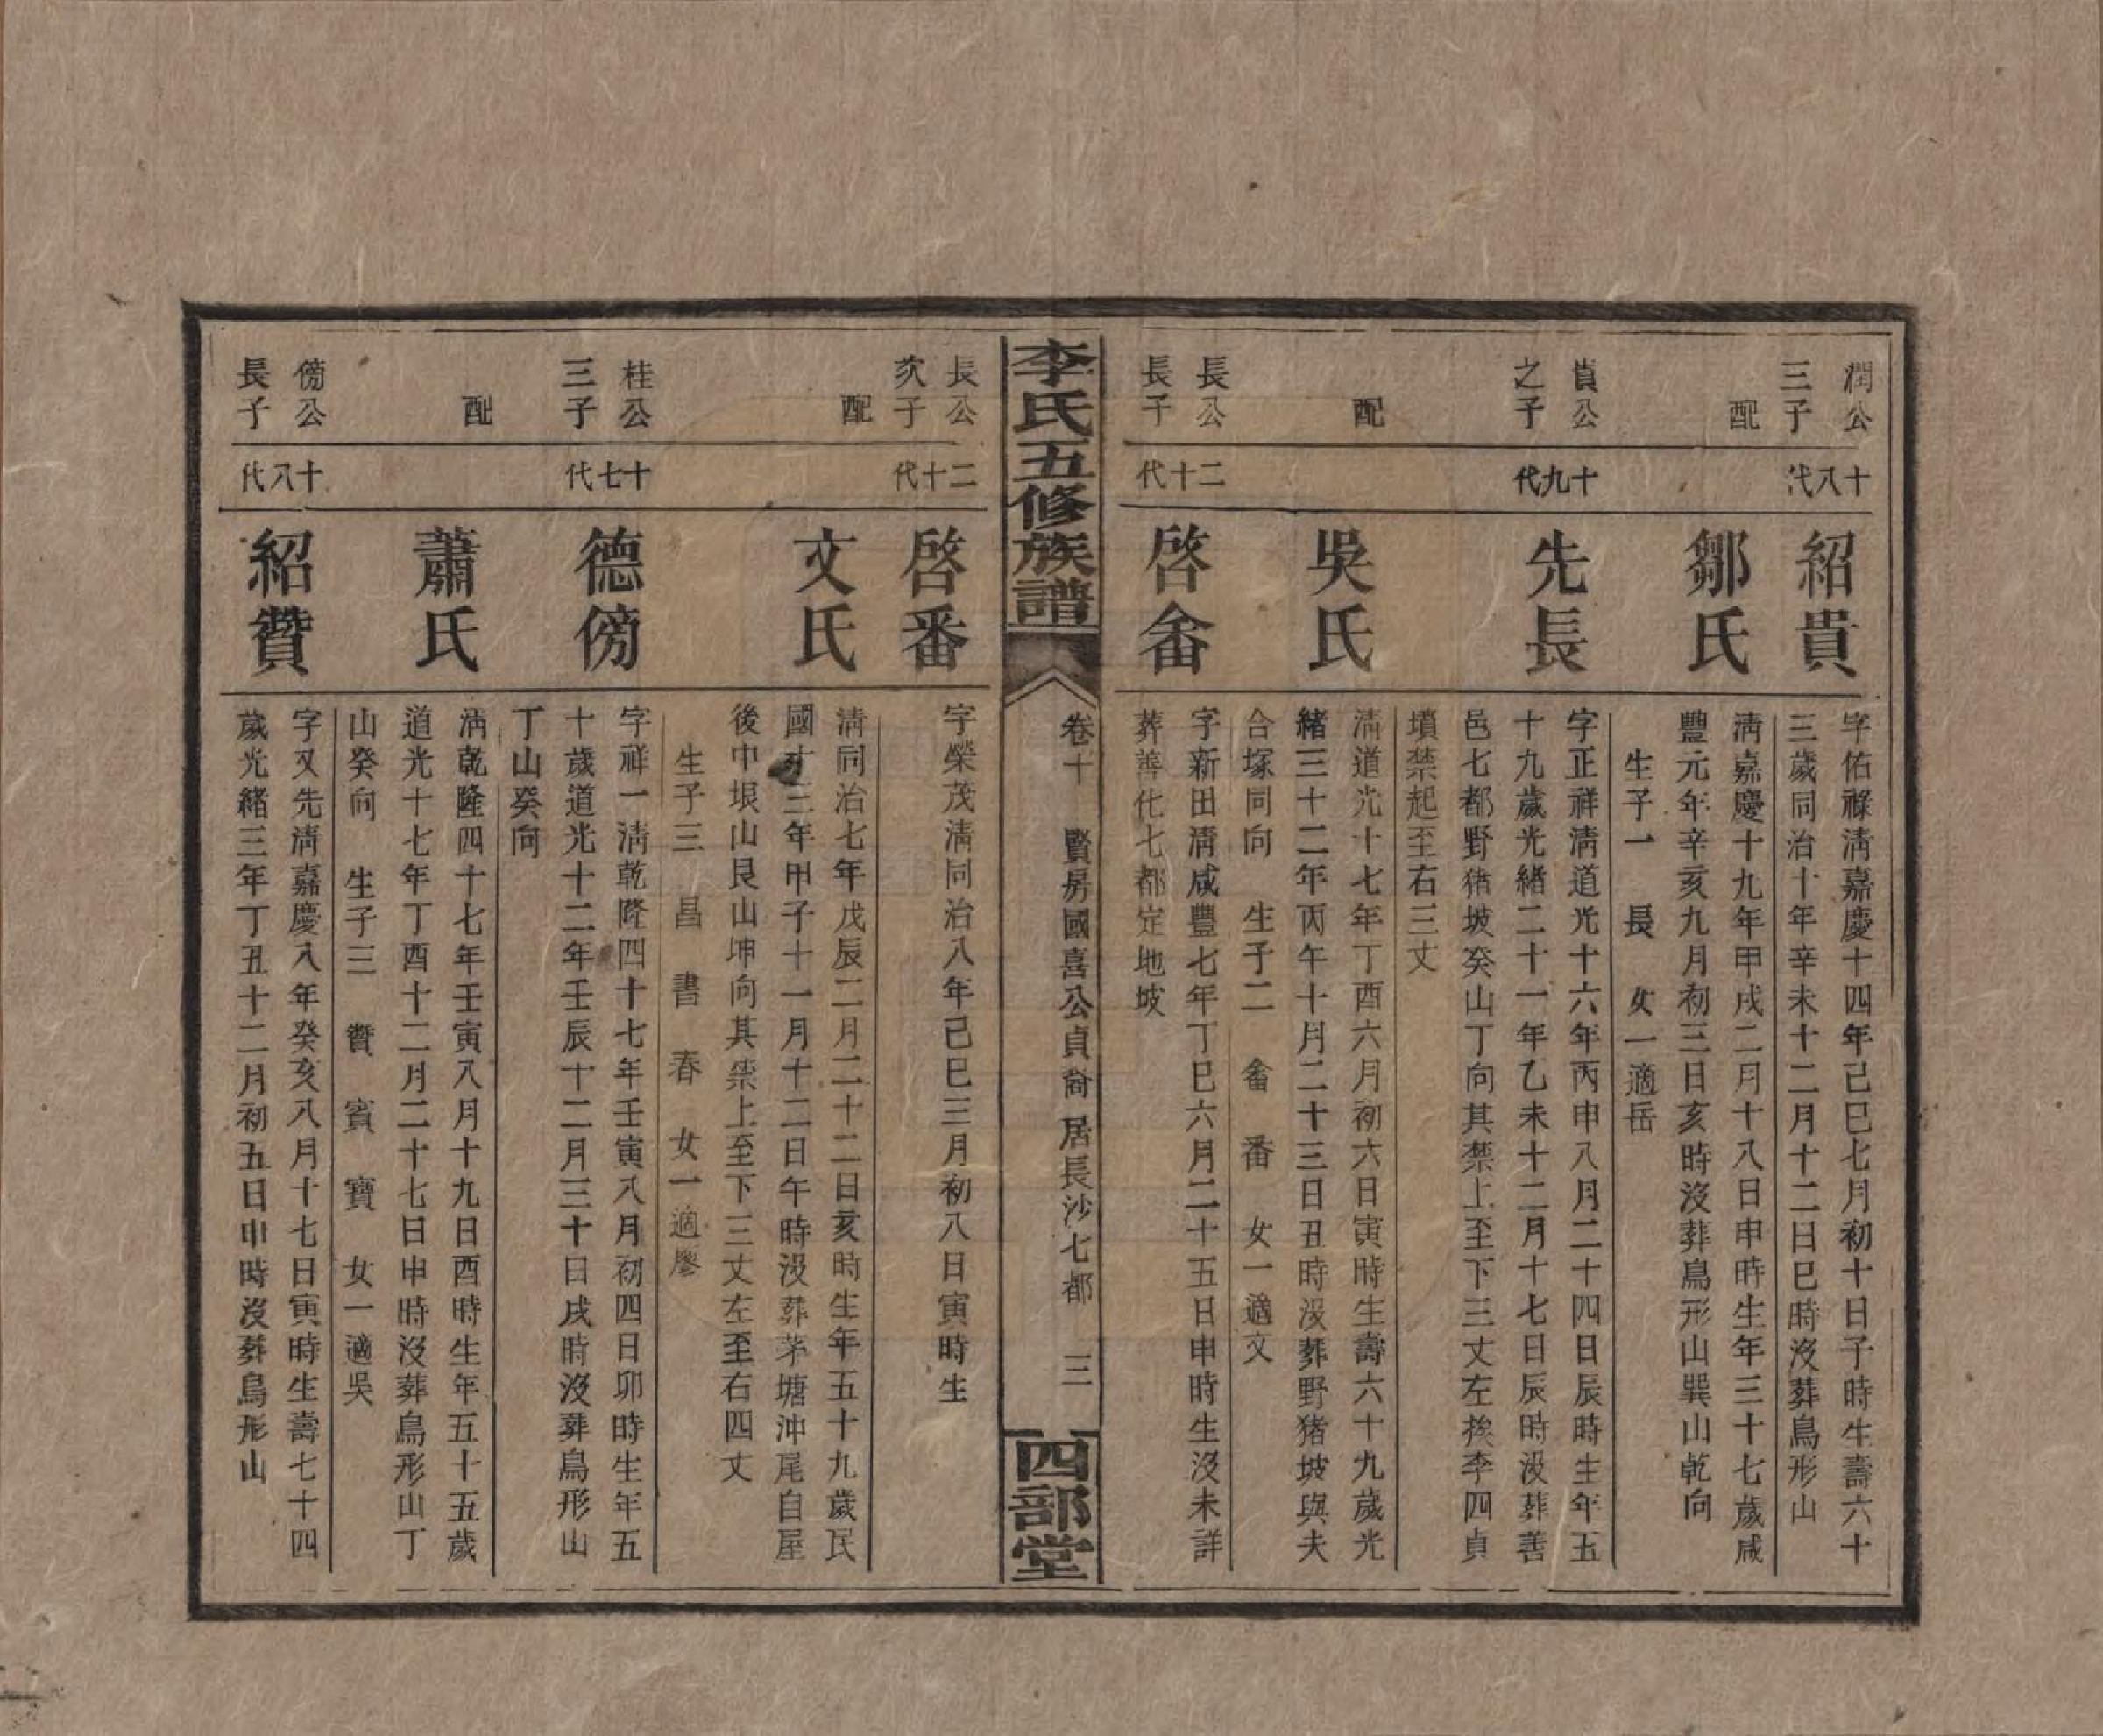 潤公
三子
十八代
紹貴
字佑祿淸嘉慶十四年己巳七月初十日子時生壽六十
三歲同治十年辛未十二月十二日巳時沒葬鳥形山
配
鄒氏
淸嘉慶十九年甲戌二月十八日申時生年三十七歲咸
豐元年辛亥九月初三日亥時沒葬鳥形山巽山乾向
生子一 長 女一適岳
貴公
之子
十九代
先長
字正祥淸道光十六年丙申八月二十四日辰時生年五
十九歲光緒二十一年乙未十二月十七日辰時沒葬善
邑七都野猪坡癸山丁向其禁上至下三丈左挨李四貞
墳禁起至右三丈
配
吳氏
淸道光十七年丁酉六月初六日寅時生壽六十九歲光
緒三十二年丙午十月二十三日丑時沒葬野猪坡與夫
合塚同向 生子二 畬 番 女一適文
長公
長子
二十代
啓畬
字新田淸咸豐七年丁巳六月二十五日申時生沒未詳
葬善化七都定地坡
李氏五修族譜
卷十 賢房國喜公貞裔 居長沙七都 三
四部堂
長公
次子
二十代
啓番
字榮茂淸同治八年己巳三月初八日寅時生
配
文氏
淸同治七年戊辰二月二十二日亥時生年五十九歲民
國十三年甲子十一月十二日午時沒葬茅塘沖尾自屋
後中垠山艮山坤向其禁上至下三丈左至右四丈
生子三 昌 書 春 女一適廖
桂公
三子
十七代
德傍
字祥一淸乾隆四十七年壬寅八月初四日卯時生年五
十歲道光十二年壬辰十二月三十日戌時沒葬鳥形山
丁山癸向
配
蕭氏
淸乾隆四十七年壬寅八月十九日酉時生年五十五歲
道光十七年丁酉十二月二十七日申時沒葬鳥形山丁
山癸向 生子三 贊 賓 寶 女一適吳
傍公
長子
十八代
紹贊
字又先淸嘉慶八年癸亥八月十七日寅時生壽七十四
歲光緒三年丁丑十二月初五日申時沒葬鳥形山